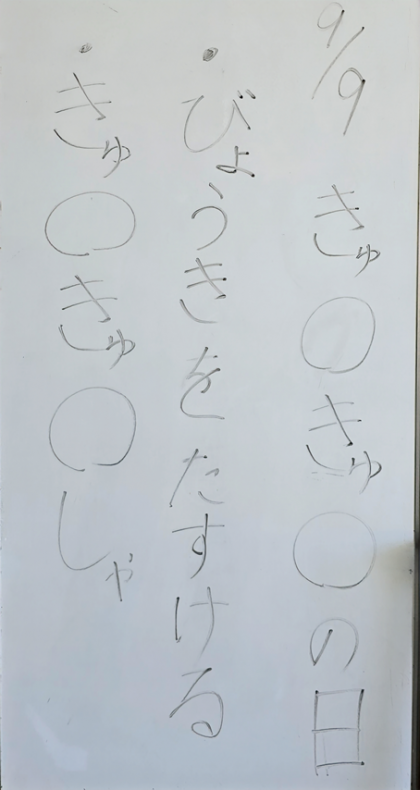 9/9 きゅ○きゅ○の日
・びょうきをたすける
・きゅ○きゅ○しゃ